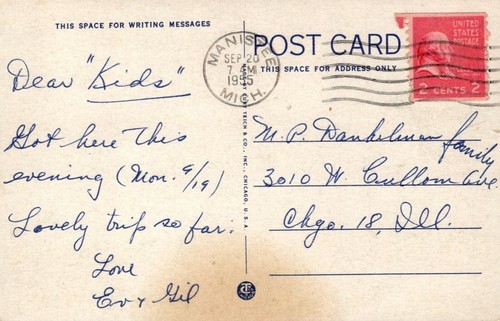 THIS SPACE FOR WRITING MESSAGES
POST CARD
THIS SPACE FOR ADDRESS ONLY
MANISTEE
SEP 20
7 AM
1955
MICH.
UNITED
STATES
POSTAGE
2 CENTS 2
Dear "Kids"
Got here this
evening (Mon. 9/19)
Lovely trip so far.
Love
Ev & Gil
M. P. Dankelman family
3010 W. Cullom Ave
Chgo. 18, Ill.
TEICH & CO., INC., CHICAGO, U.S.A.